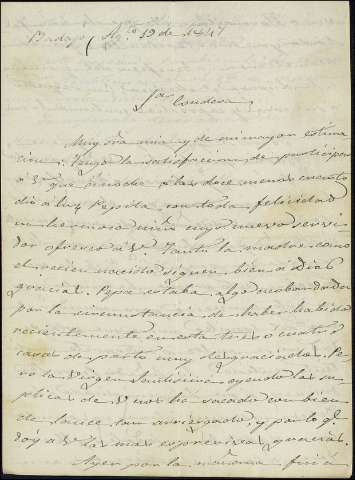 Badajoz Ag.º 19 de 1847
Sra Condesa,
Muy Sra mia y de mi mayor estima
cion: Tengo la satisfaccion de participar
á V. que anoche á las doce menos cuarto
dió á luz Pepita con toda felicidad
un hermoso niño cuyo nuevo servi
dor ofrezco á V. Tanto la madre como
el recien nacido siguen bien á Dios
gracias. Pepa estaba algo acobardada
por la circunstancia de haber habido
recientemente en esta tres ó cuatro
casos de parto muy desgraciados. Pe
ro la Virgen Santisima oyendo las su
plicas de V. nos ha sacado con bien
de lance tan arriesgado, y por lo q.
doy á V. las mas expresivas gracias.
Ayer por la mañana